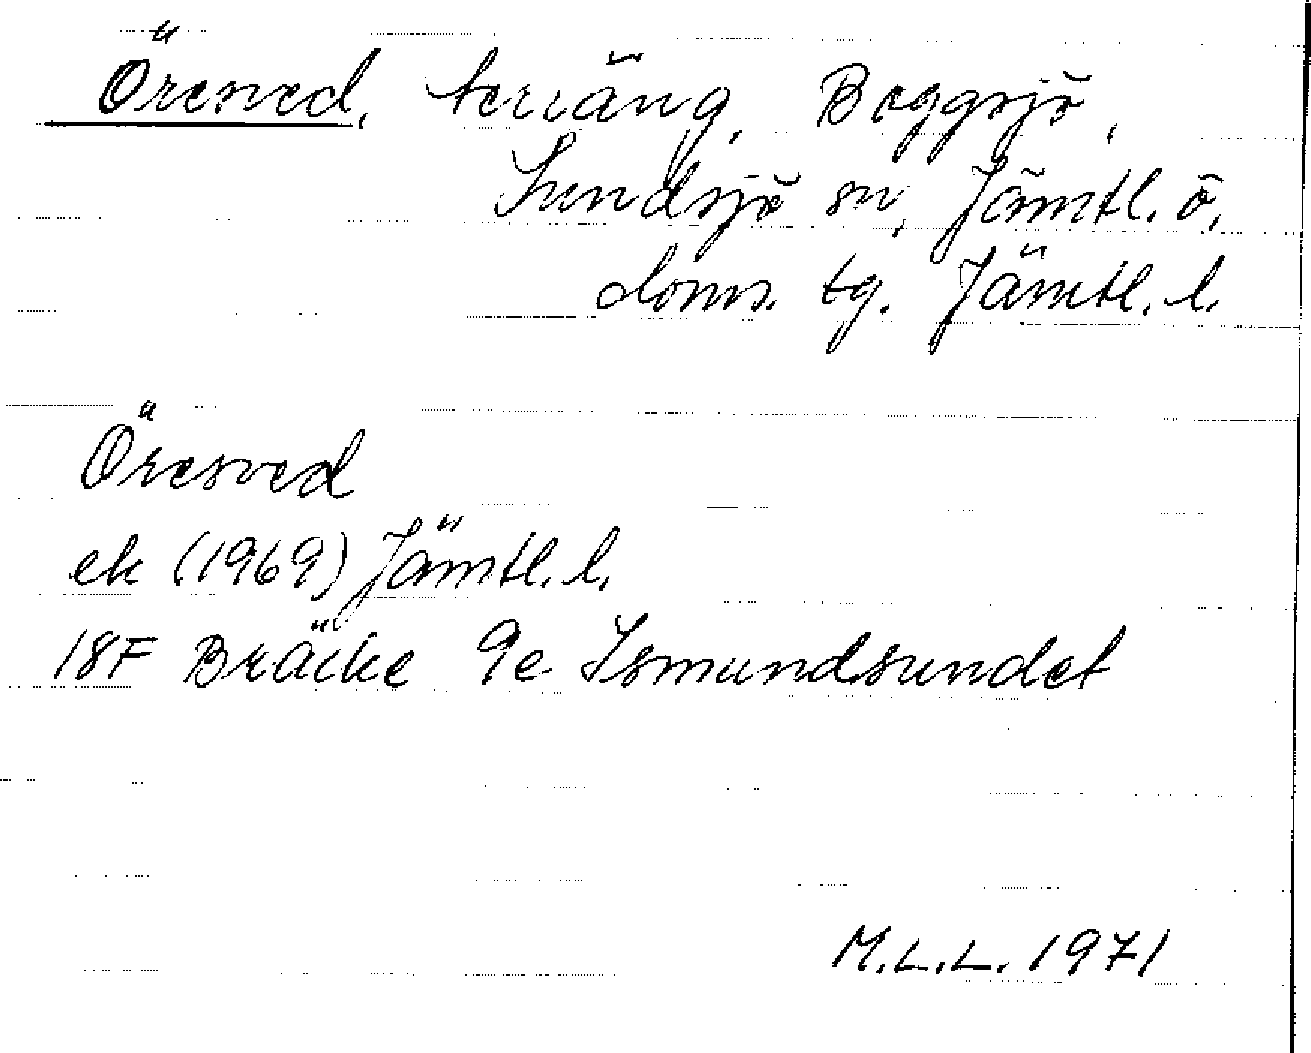 Öresved, terräng, Boggsjö,
Sundsjö sn, Jämtl. ö.
doms. tg. Jämtl. l.
Öresved
ek (1969) Jämtl. l.
18F Bräcke 9e Ismundsundet
M.L.L. 1971